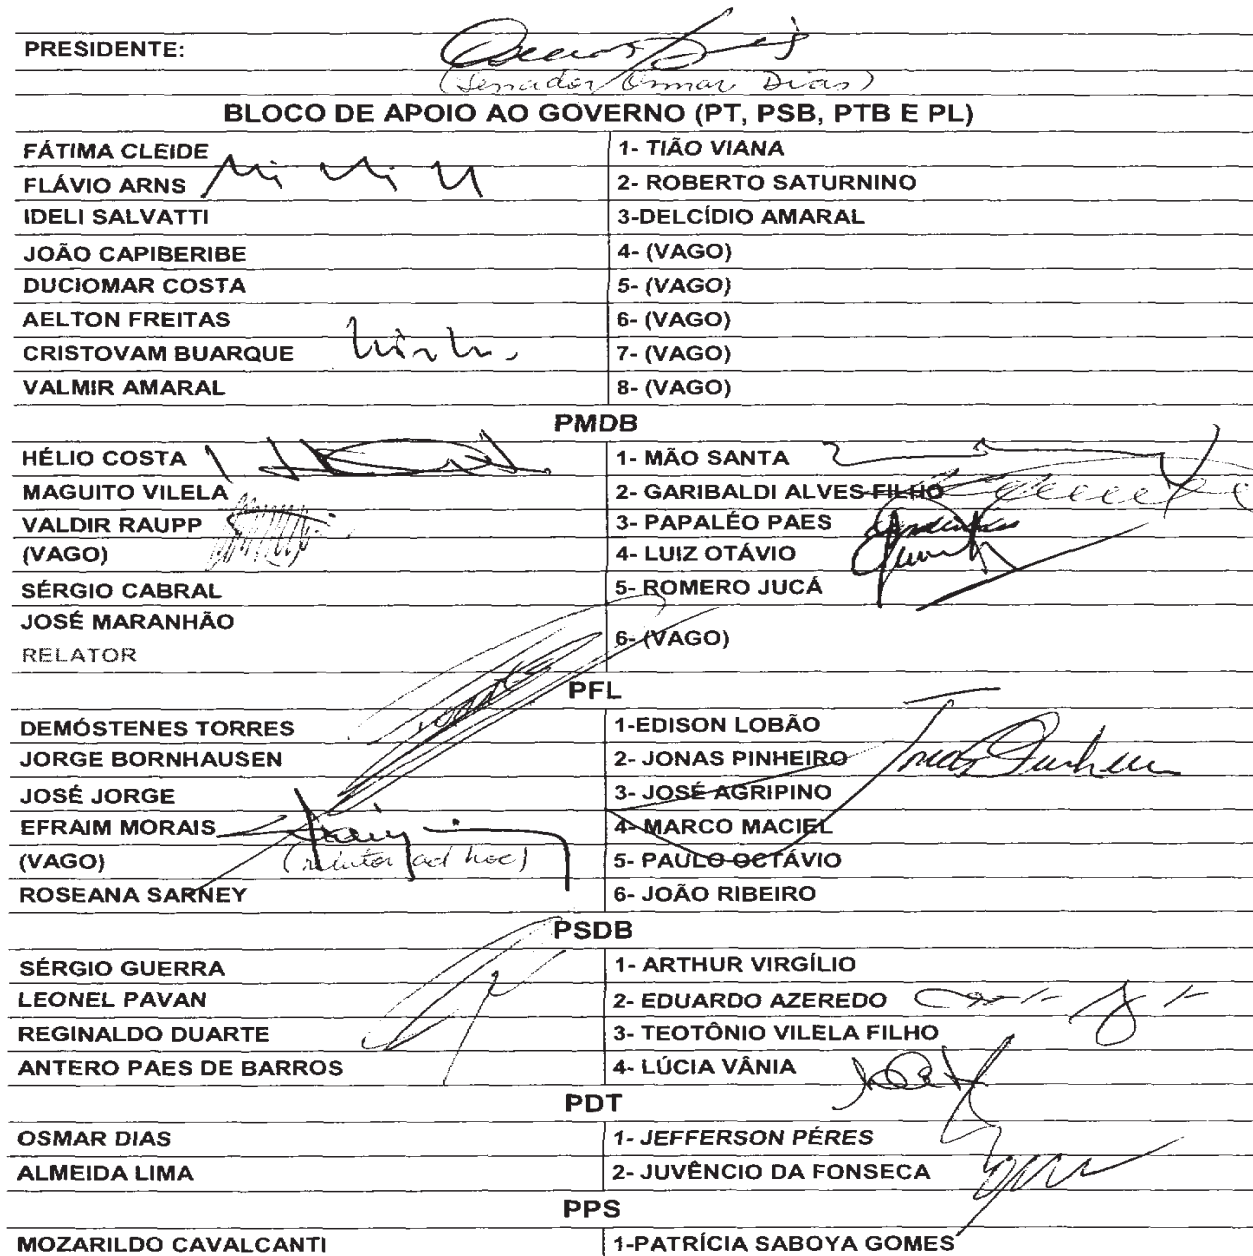 PRESIDENTE:
(Senador Osmar Dias)
BLOCO DE APOIO AO GOVERNO (PT, PSB, PTB E PL)
FÁTIMA CLEIDE 1- TIÃO VIANA
FLÁVIO ARNS 2- ROBERTO SATURNINO
IDELI SALVATTI 3-DELCÍDIO AMARAL
JOÃO CAPIBERIBE 4- (VAGO)
DUCIOMAR COSTA 5- (VAGO)
AELTON FREITAS 6- (VAGO)
CRISTOVAM BUARQUE 7- (VAGO)
VALMIR AMARAL 8- (VAGO)
PMDB
HÉLIO COSTA 1- MÃO SANTA
MAGUITO VILELA 2- GARIBALDI ALVES FILHO
VALDIR RAUPP 3- PAPALÉO PAES
(VAGO) 4- LUIZ OTÁVIO
SÉRGIO CABRAL 5- ROMERO JUCÁ
JOSÉ MARANHÃO 6- (VAGO)
RELATOR
PFL
DEMÓSTENES TORRES 1-EDISON LOBÃO
JORGE BORNHAUSEN 2- JONAS PINHEIRO Jonas Pinheiro
JOSÉ JORGE 3- JOSÉ AGRIPINO
EFRAIM MORAIS 4- MARCO MACIEL
(VAGO) (relator ad hoc) 5- PAULO OCTÁVIO
ROSEANA SARNEY 6- JOÃO RIBEIRO
PSDB
SÉRGIO GUERRA 1- ARTHUR VIRGÍLIO
LEONEL PAVAN 2- EDUARDO AZEREDO
REGINALDO DUARTE 3- TEOTÔNIO VILELA FILHO
ANTERO PAES DE BARROS 4- LÚCIA VÂNIA
PDT
OSMAR DIAS 1- JEFFERSON PÉRES
ALMEIDA LIMA 2- JUVÊNCIO DA FONSECA
PPS
MOZARILDO CAVALCANTI 1-PATRÍCIA SABOYA GOMES